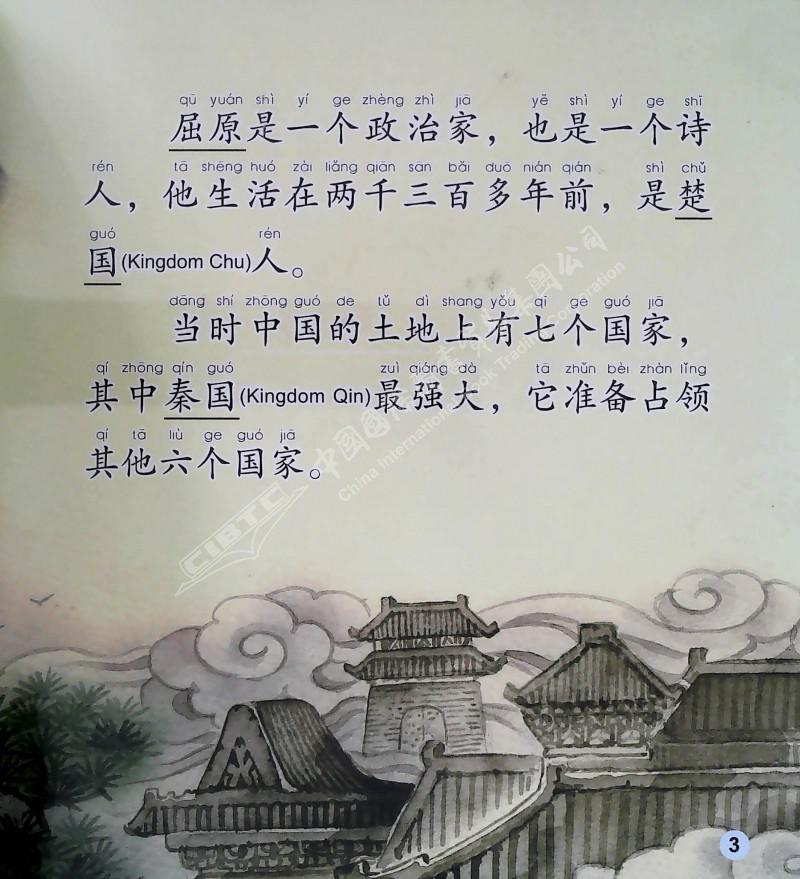 qū yuán shì yí ge zhèng zhì jiā yě shì yí ge shī
屈原是一个政治家，也是一个诗
rén tā shēng huó zài liǎng qiān sān bǎi duō nián qián shì chǔ
人，他生活在两千三百多年前，是楚
guó rén
国(Kingdom Chu)人。
dāng shí zhōng guó de tǔ dì shang yǒu qī ge guó jiā
当时中国的土地上有七个国家，
qí zhōng qín guó zuì qiáng dà tā zhǔn bèi zhàn lǐng
其中秦国(Kingdom Qin)最强大，它准备占领
qí tā liù ge guó jiā
其他六个国家。
CIBTC
China International Book Trading Corporation
3